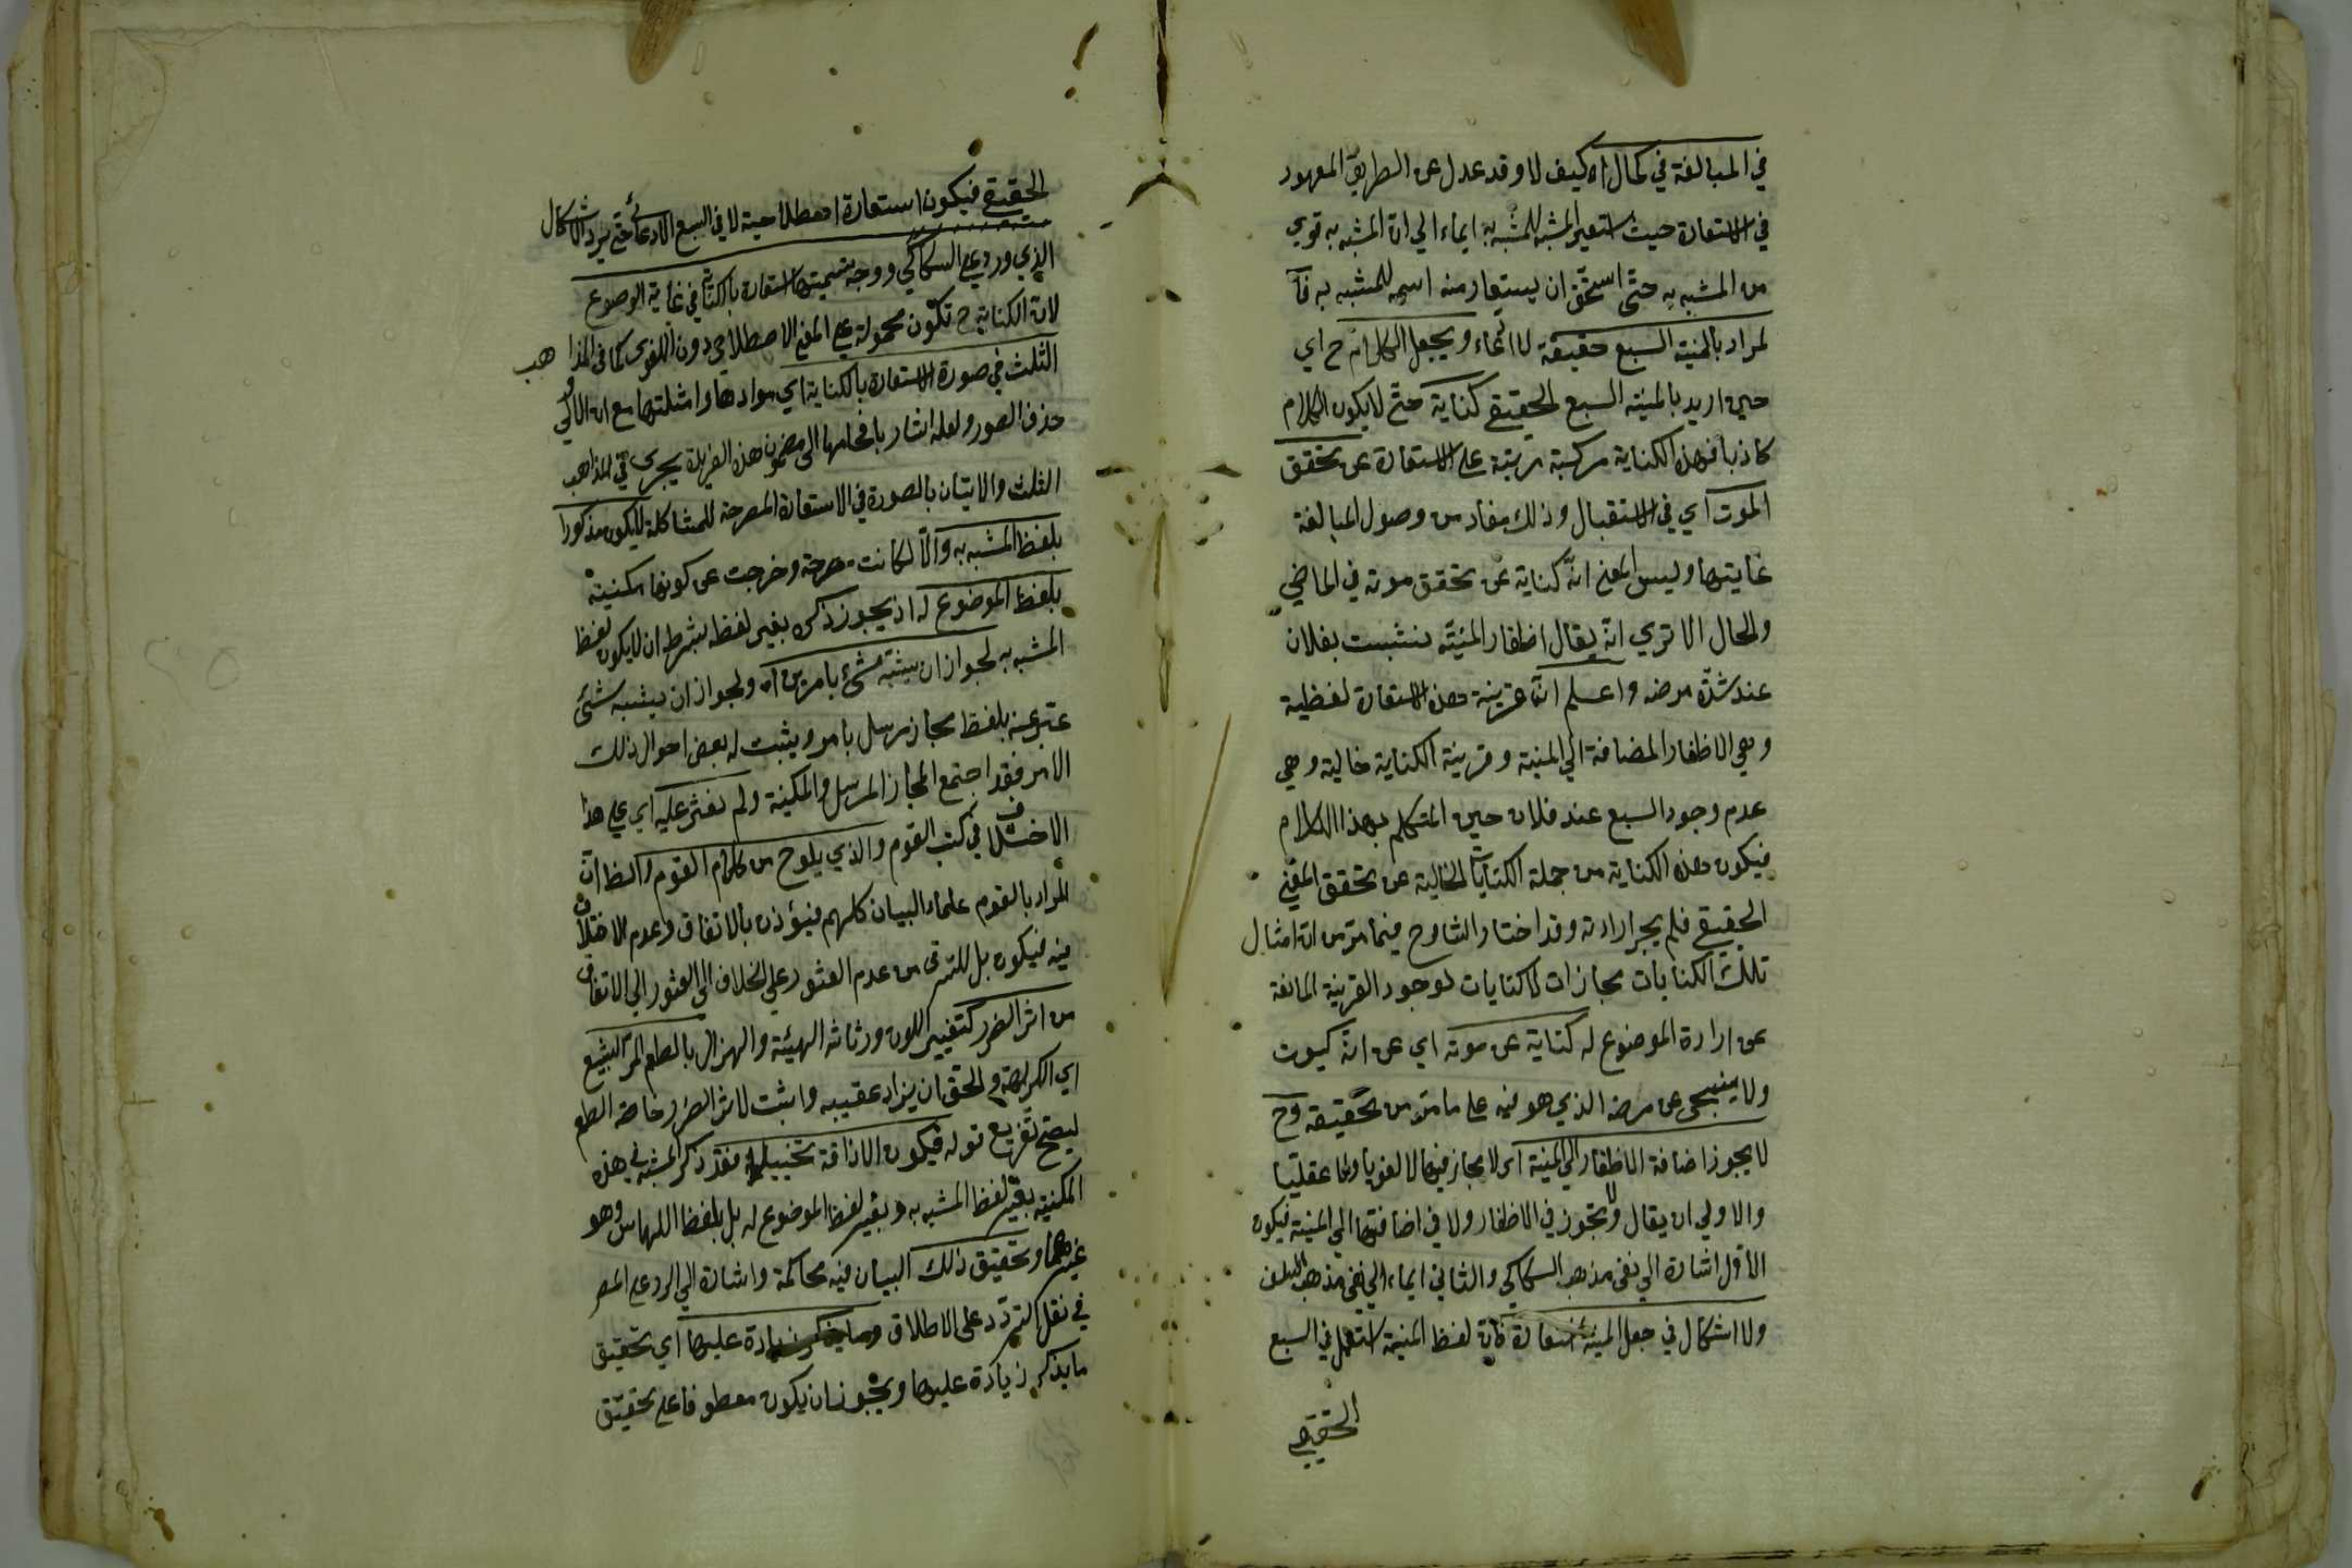 في المبالغة في كمال اه كيف لا وقد عدل عن الطريق المعهود
في الاستعارة حيث استعير المشبه للمشبه به ايماء الي ان المشبه به قوي
من المشبه به حتى استحق ان يستعار منه اسمه للمشبه به فا
لمراد بالمنية السبع حقيقة لا ادعاء ويجعل الكلام ح اي
حين اريد بالمنية السبع الحقيقي كناية حتى لا يكون الكلام
كاذبا فهذه الكناية مركبة مرتبة على الاستعارة عن تحقق
الموت اي في الاستقبال وذلك مفاد من وصول المبالغة
غايتها وليس المعنى انه كناية عن تحقق موته في الماضي
والحال الا تري انه يقال اظفار المنية نشبت بفلان
عند شدة مرضه واعلم ان قرينة هذه الاستعارة لفظية
وهي الاظفار المضافة الي المنية وقرينة الكناية حالية وهي
عدم وجود السبع عند فلان حين المتكلم بهذا الكلام
فيكون هذه الكناية من جملة الكنايات الخالية عن تحقق المعنى
الحقيقي فلم يجز ارادته وقد اختار الشارح فيما مر من ان امثال
تلك الكنايات مجازات لا كنايات لوجود القرينة المانعة
عن ارادة الموضوع له كناية عن موته اي عن انه كيموت
ولا ينجى عن مرضه الذي هو فيه على ما مر من تحقيقه وح
لا يجوز اضافة الاظفار الي المنية اى لا مجاز فيها لا لغويا ولا عقليا
والاولي ان يقال ولا تجوز في الاظفار ولا في اضافتها الي المنية فيكون
الاول اشارة الي نفى مذهب السكاكي والثاني ايماء الي نفى مذهب السلف
ولا اشكال في جعل المنية استعارة فان لفظ المنية استعمل في السبع
الحقيقي
الحقيقي فيكون استعارة اصطلاحية لا في السبع الادعائي حتى يرد الاشكال
الذي ورد على السكاكي ووجه تسميتها استعارة بالكناية في غاية الوضوح
لان الكناية ح تكون محمولة على المعنى الاصطلاحى دون اللغوى كما في المذاهب
الثلث في صورة الاستعارة بالكناية اي موادها وامثلتها مع ان الاولي
حذف الصور ولعله اشار باقحامها الى مضمون هذه الفريدة يجرى في المذاهب
الثلث والاتيان بالصورة في الاستعارة المصرحة للمشاكلة لا يكون مذكورا
بلفظ المشبه به والا لكانت مصرحة وخرجت عن كونها مكنية
بلفظ الموضوع له اذ يجوز ذكره بغير لفظه بشرط ان لا يكون لفظ
المشبه به لجواز ان يشبه شئ بامرين اه ولجواز ان يشبه شئ
عبر عنه بلفظ مجاز مرسل بامر ويثبت له بعض احوال ذلك
الامر فقد اجتمع المجاز المرسل والمكنية ولم نعثر عليه اي على هذا
الاختلاف في كتب القوم والذي يلوح من كلام القوم والظ ان
المراد بالقوم علماء البيان كلهم فيؤذن بالاتفاق وعدم الاختلاف
فيه فيكون بل للترقى من عدم العثور على الخلاف الى العثور الي الاتفاق
من اثر الضرر كتغيير اللون ورثاثة الهيئة والهزال بالطعم المر البشع
اي الكريهة والحق ان يزاد عقيبه واثبت لاثر الضرر خاصة الطعم
ليصح تفريع قوله فيكون الاذاقة تخييلا فقد ذكر المشبه في هذه
المكنية بغير لفظ المشبه به وبغير لفظ الموضوع له بل بلفظ اللباس وهو
غيرهما وتحقيق ذلك البيان فيه محاكمة واشارة الي الرد على المص
في نقل التردد على الاطلاق زيادة عليها اي تحقيق
ما يذكر زيادة عليها ويجوز ان يكون معطوفا على تحقيق